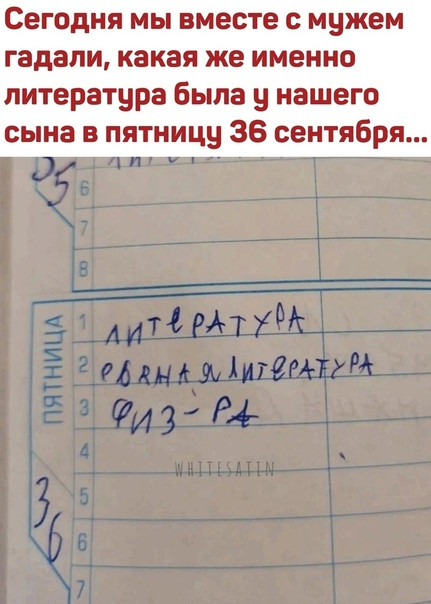 Сегодня мы вместе с мужем
гадали, какая же именно
литература была у нашего
сына в пятницу 36 сентября...
35
6
7
8
ПЯТНИЦА
1 ЛИТЕРАТУРА
2 ЛИТЕРАТУРА
3 ФИЗ-РА
4
WHITESATIN
36
5
6
7